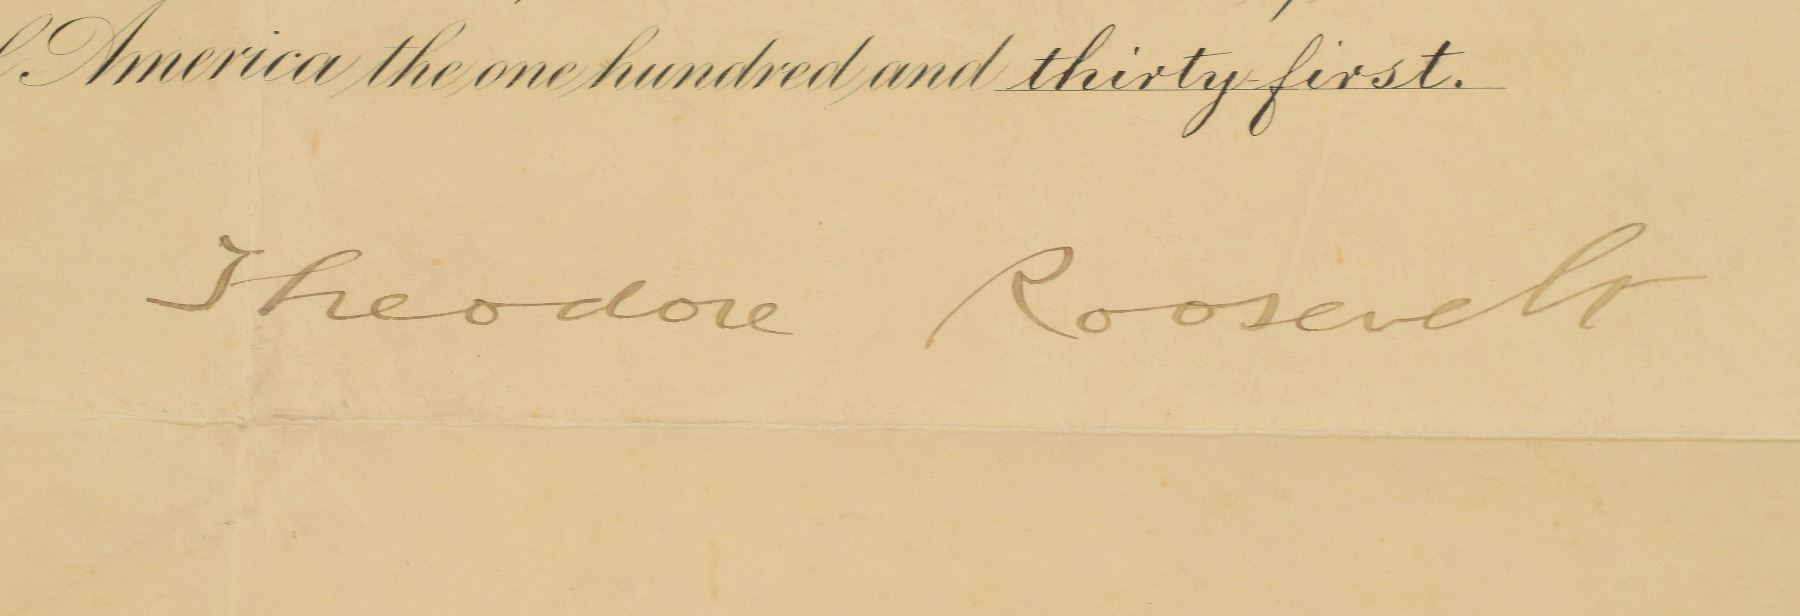 America the one hundred and thirty-first.
Theodore Roosevelt